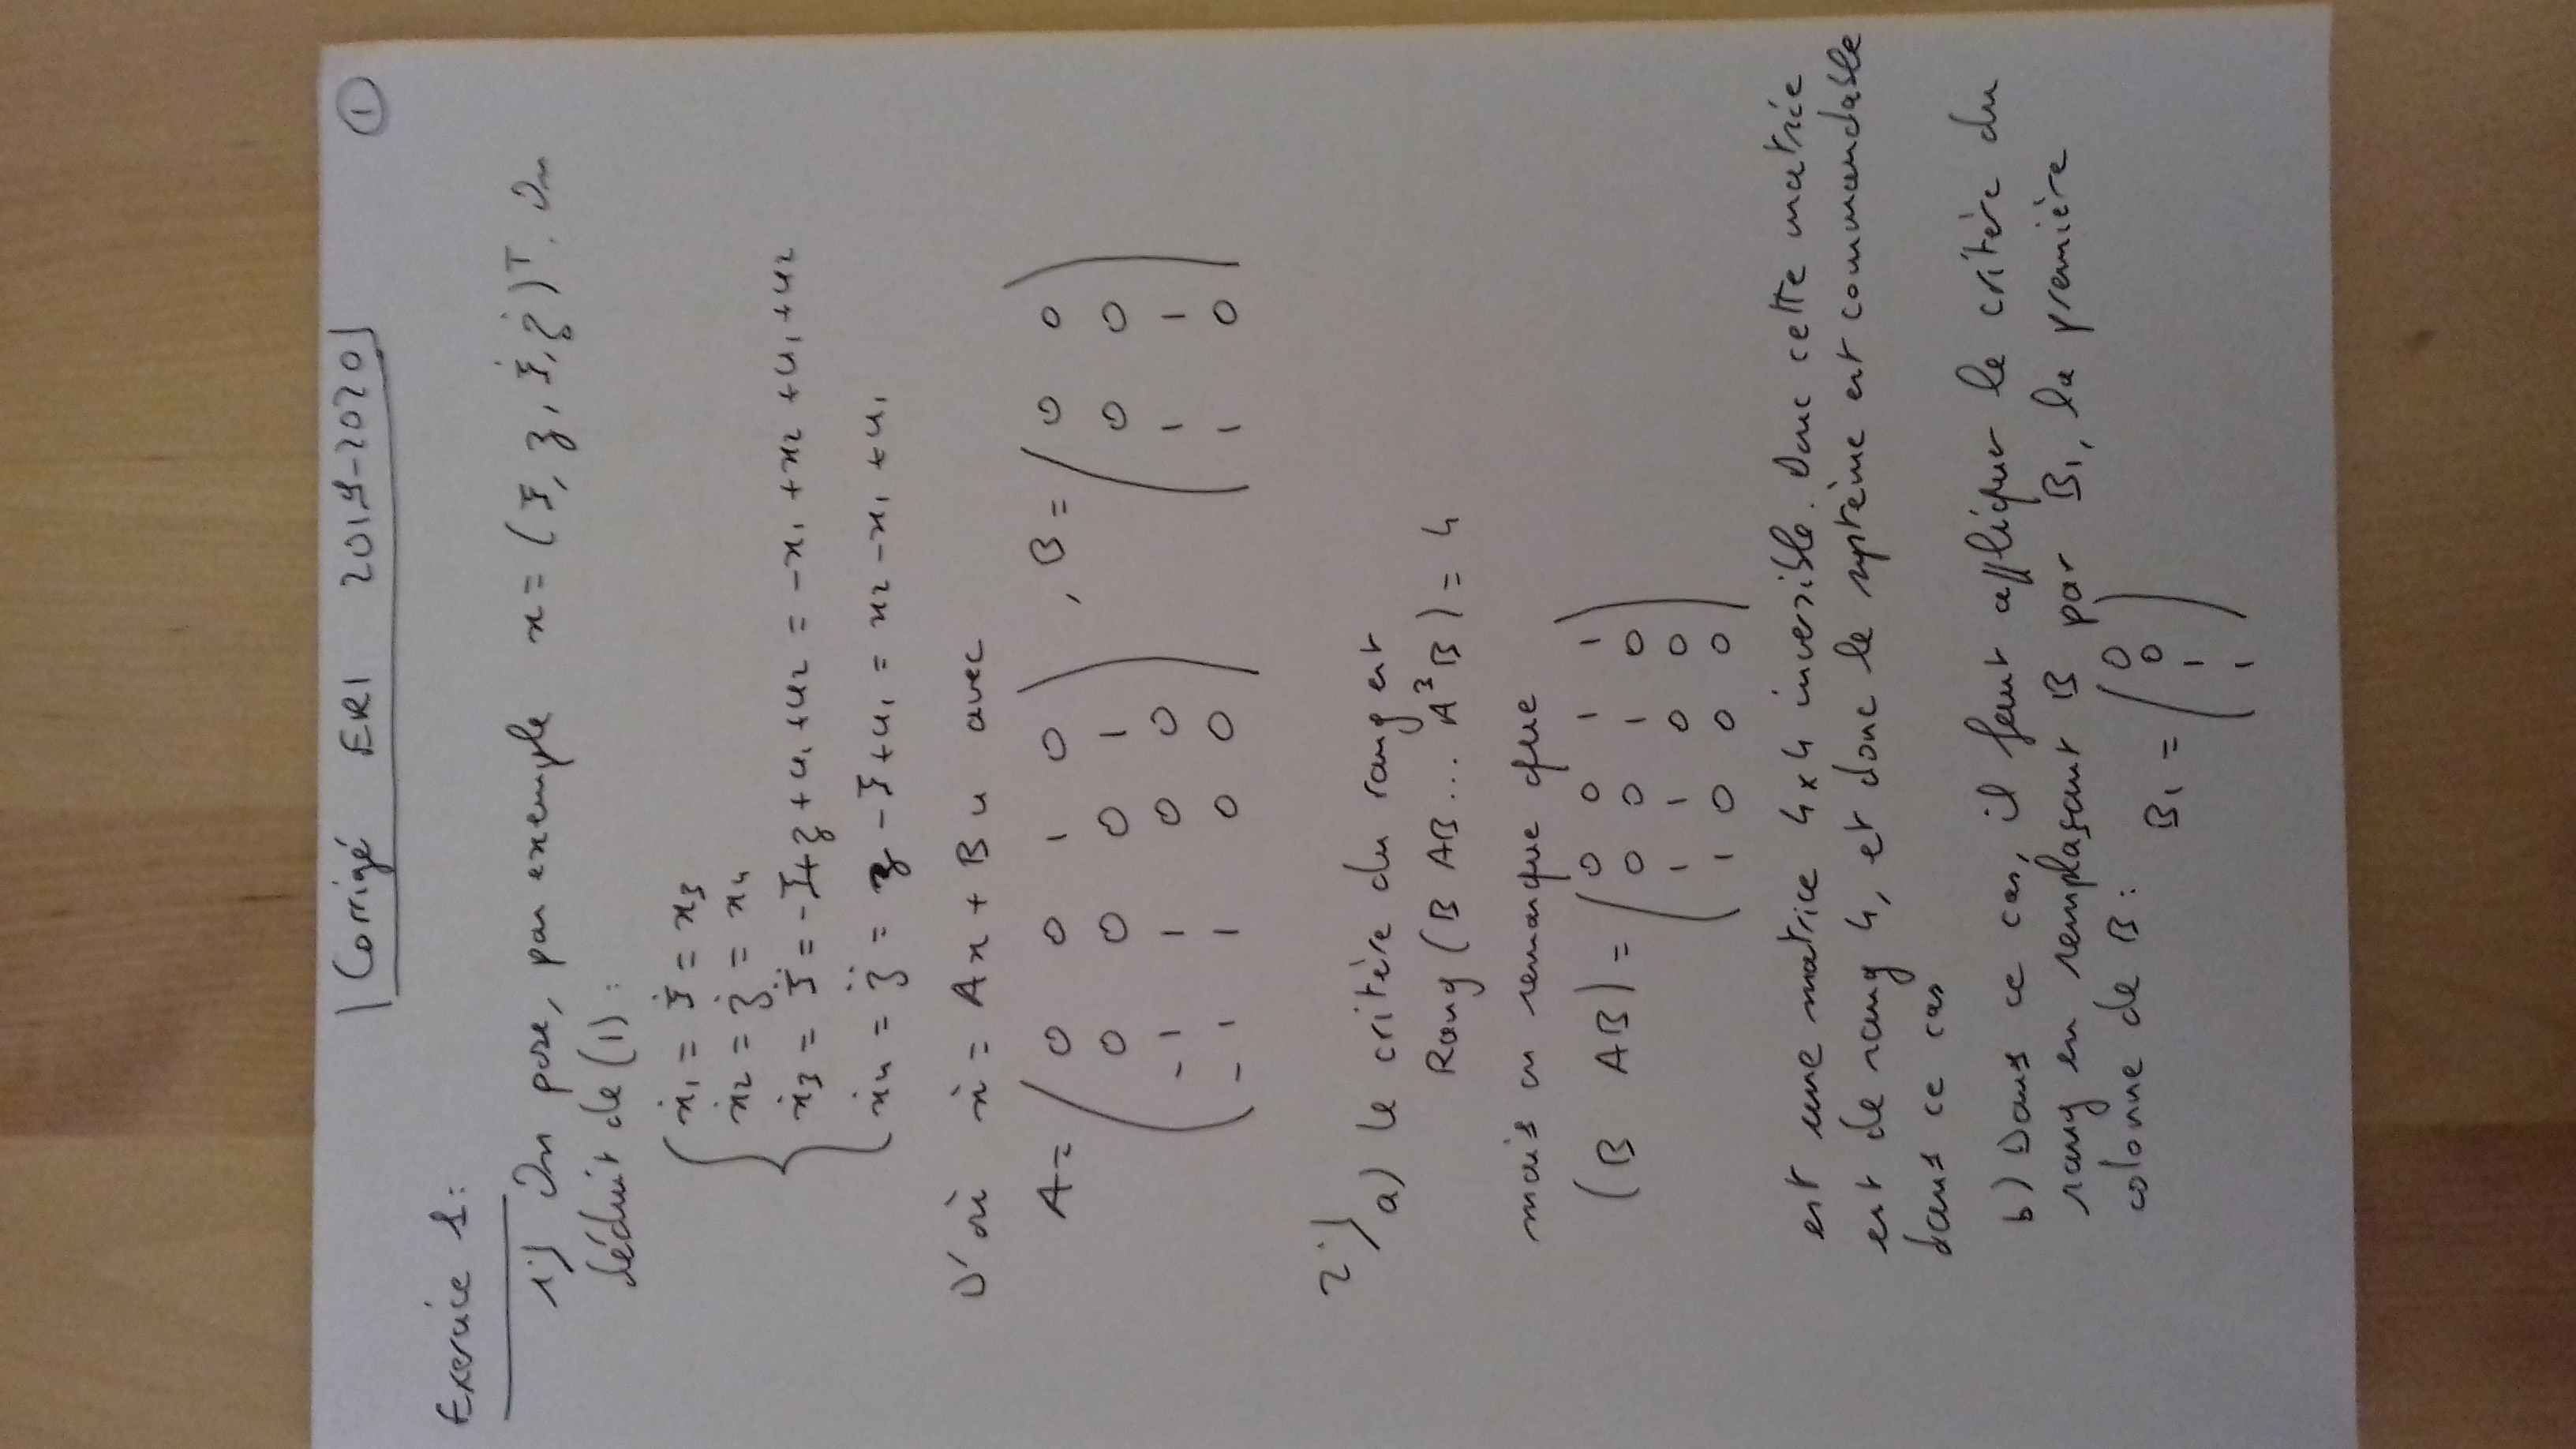 Corrigé ER1 2019-2020 ①
Exercice 1:
1°) On pose, par exemple x = (ξ, z, ξ̇, ż)ᵀ. On
déduit de (1) :
ẋ₁ = ξ̇ = x₃
ẋ₂ = ż = x₄
ẋ₃ = ξ̈ = -ξ + z + u₁ + u₂ = -x₁ + x₂ + u₁ + u₂
ẋ₄ = z̈ = z - ξ + u₁ = x₂ - x₁ + u₁
D'où ẋ = Ax + Bu avec
A = ( 0 0 1 0 ) , B = ( 0 0 )
0 0 0 1 0 0
-1 1 0 0 1 1
-1 1 0 0 1 0
2°)
a) Le critère du rang est
Rang (B AB ... A³B) = 4
mais on remarque que
(B AB) = ( 0 0 1 1 )
0 0 1 0
1 1 0 0
1 0 0 0
est une matrice 4x4 inversible. Donc cette matrice
est de rang 4, et donc le système est commandable
dans ce cas
b) Dans ce cas, il faut appliquer le critère du
rang en remplaçant B par B₁, la première
colonne de B :
B₁ = ( 0 )
0
1
1